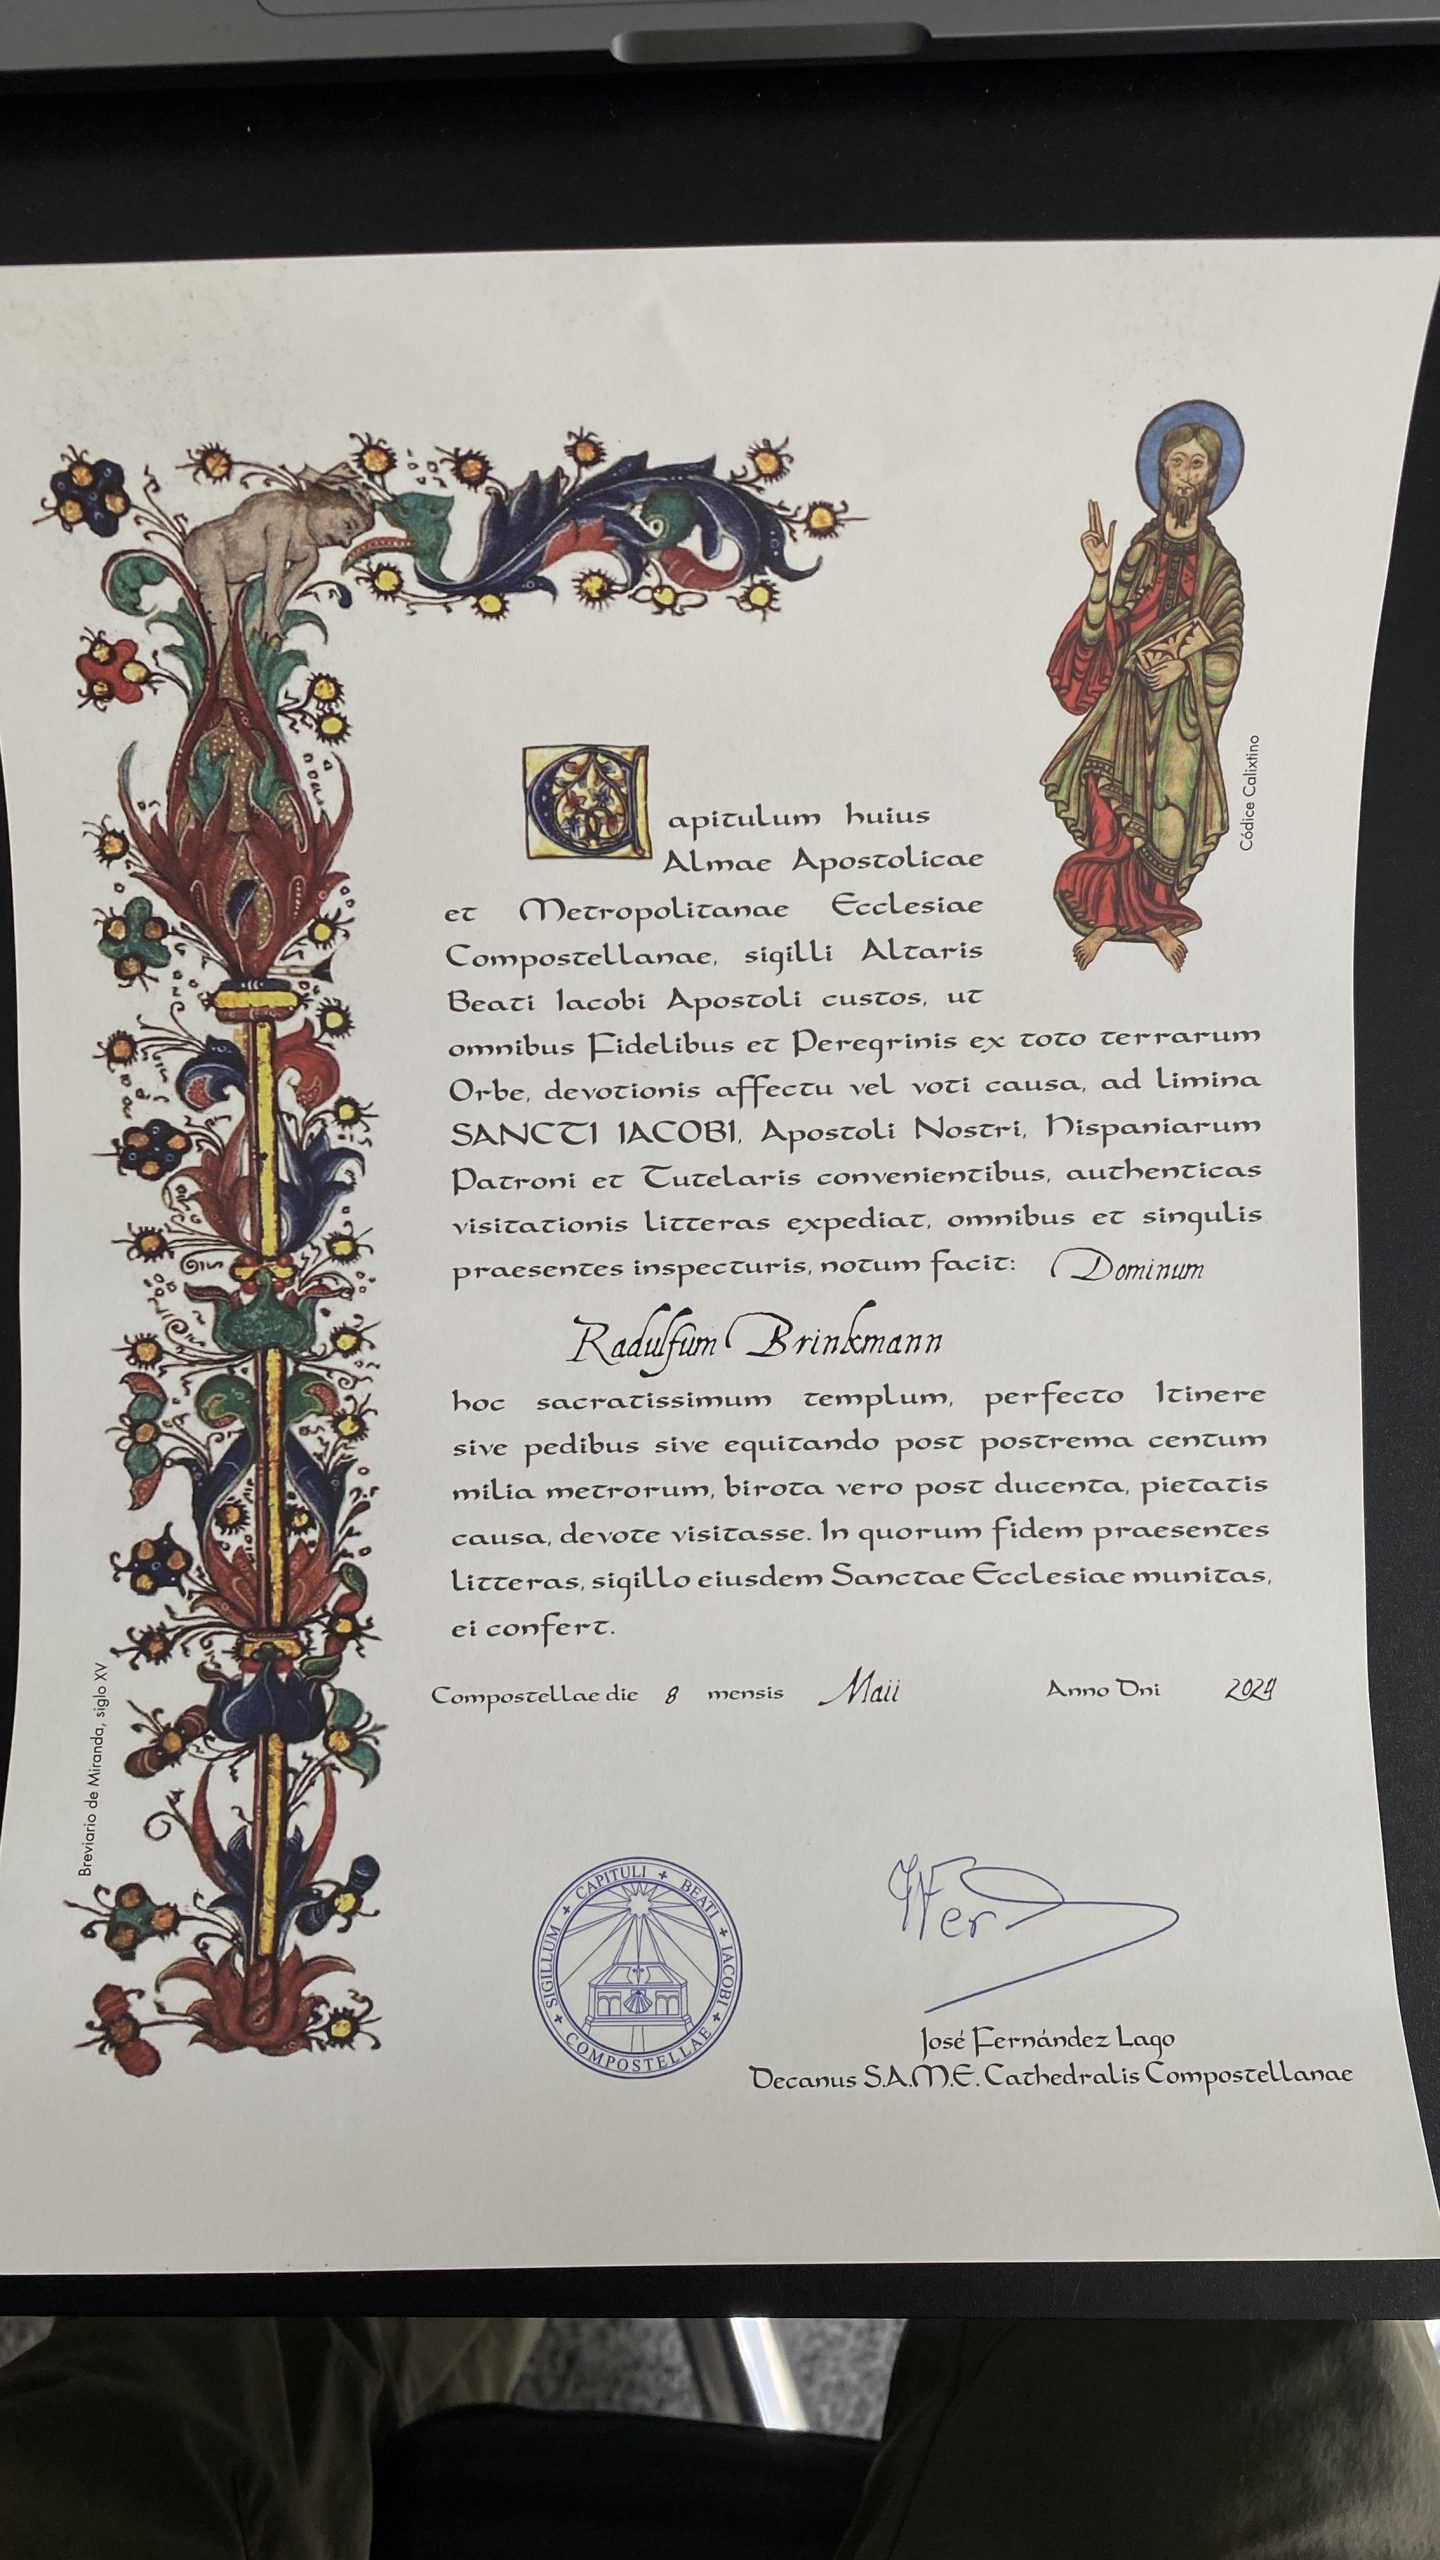 Códice Calixtino
Capitulum huius
Almae Apostolicae
et Metropolitanae Ecclesiae
Compostellanae, sigilli Altaris
Beati Iacobi Apostoli custos, ut
omnibus Fidelibus et Peregrinis ex toto terrarum
Orbe, devotionis affectu vel voti causa, ad limina
SANCTI IACOBI, Apostoli Nostri, Hispaniarum
Patroni et Tutelaris convenientibus, authenticas
visitationis litteras expediat, omnibus et singulis
praesentes inspecturis, notum facit: Dominum
Radulfum Brinkmann
hoc sacratissimum templum, perfecto Itinere
sive pedibus sive equitando post postrema centum
milia metrorum, birota vero post ducenta, pietatis
causa, devote visitasse. In quorum fidem praesentes
litteras, sigillo eiusdem Sanctae Ecclesiae munitas,
ei confert.
Compostellae die 8 mensis Maii Anno Dni 2024
Breviario de Miranda, siglo XV
SIGILLUM + CAPITULI + BEATI + IACOBI + COMPOSTELLAE +
José Fernández Lago
Decanus S.A.M.E. Cathedralis Compostellanae